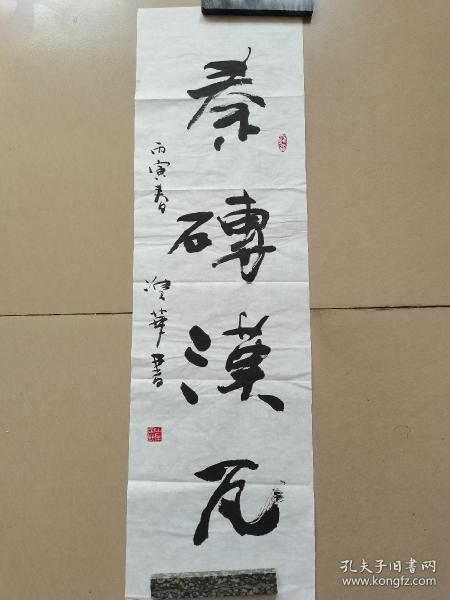 秦磚漢瓦
丙寅春日
華書
孔夫子旧书网
www.kongfz.com